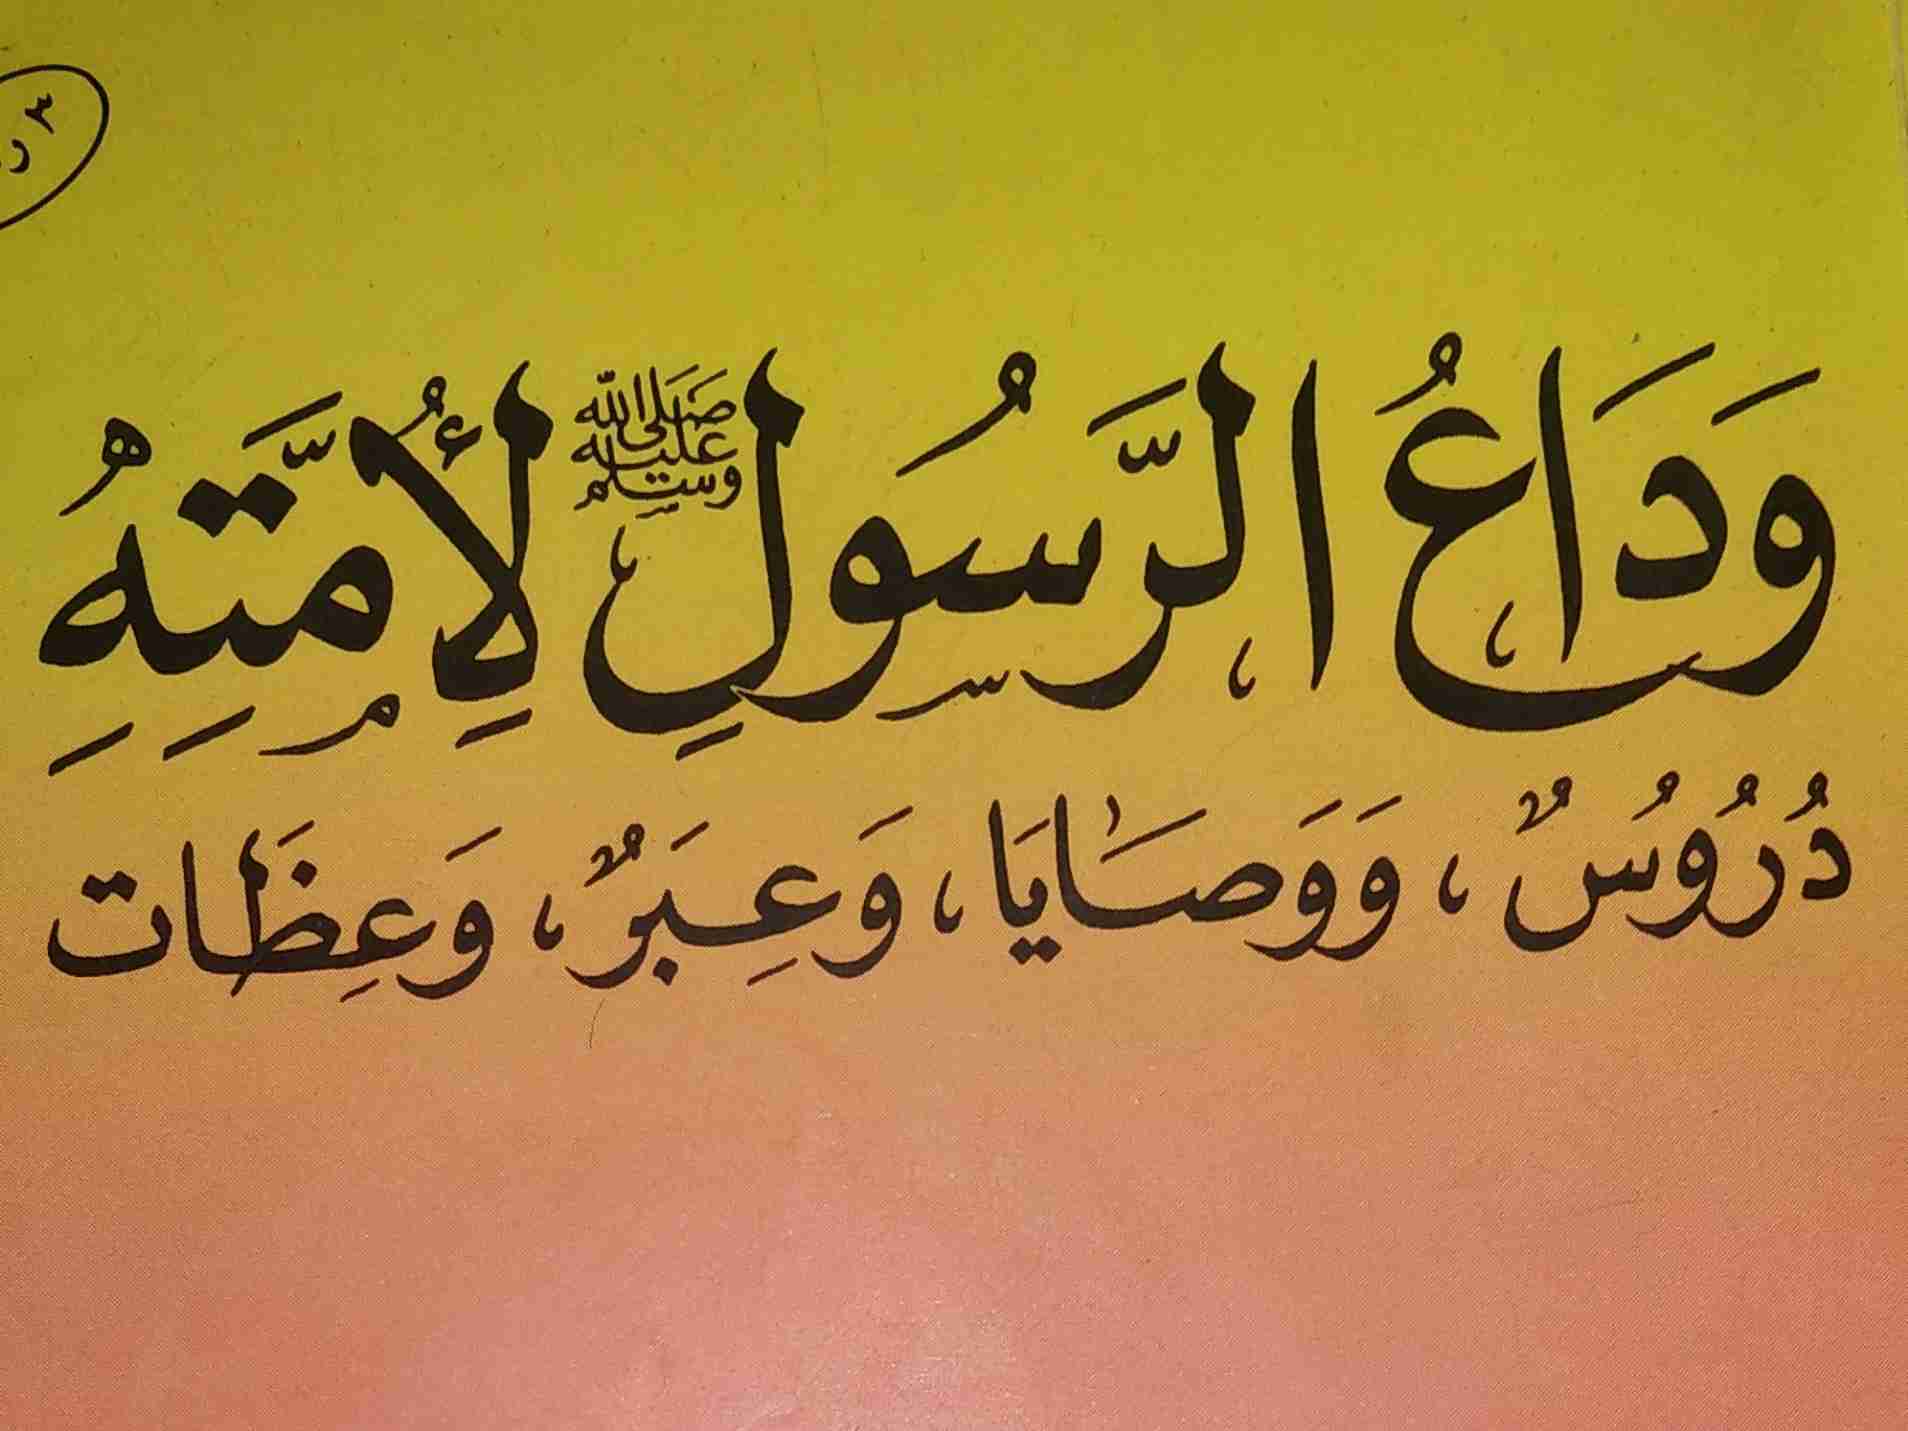 ٣ ر
وَدَاعُ الرَّسُولِ ﷺ لِأُمَّتِهِ
دُرُوسٌ، وَوَصَايَا، وَعِبَرٌ، وَعِظَات